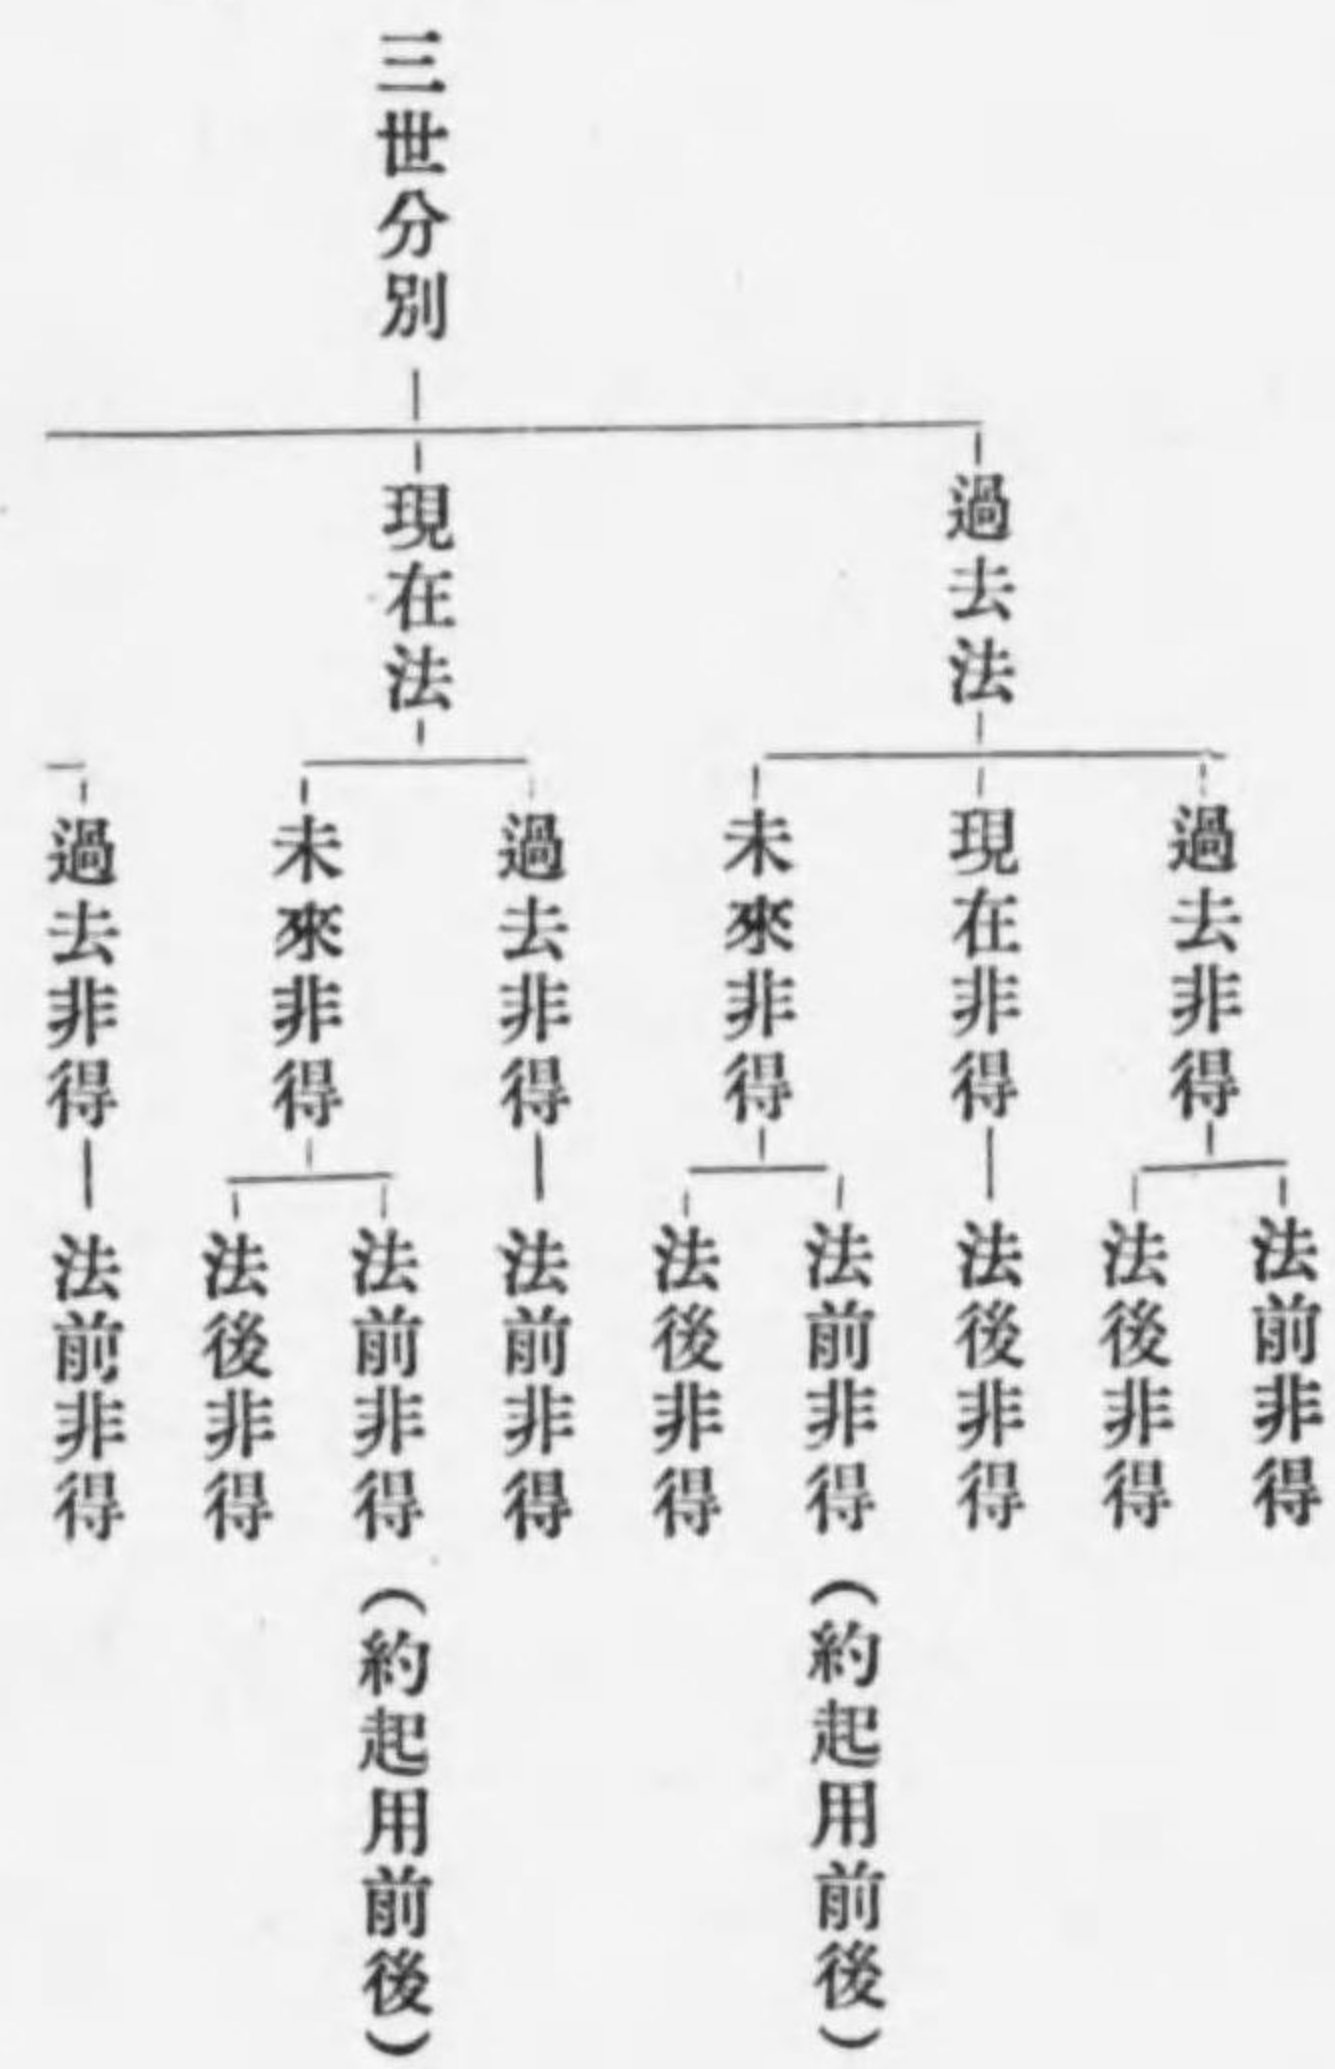 三世分別
過去法
過去非得
法前非得
法後非得
現在非得
法後非得
未來非得
法前非得（約起用前後）
法後非得
現在法
過去非得
法前非得
未來非得
法前非得（約起用前後）
法後非得
過去非得
法前非得